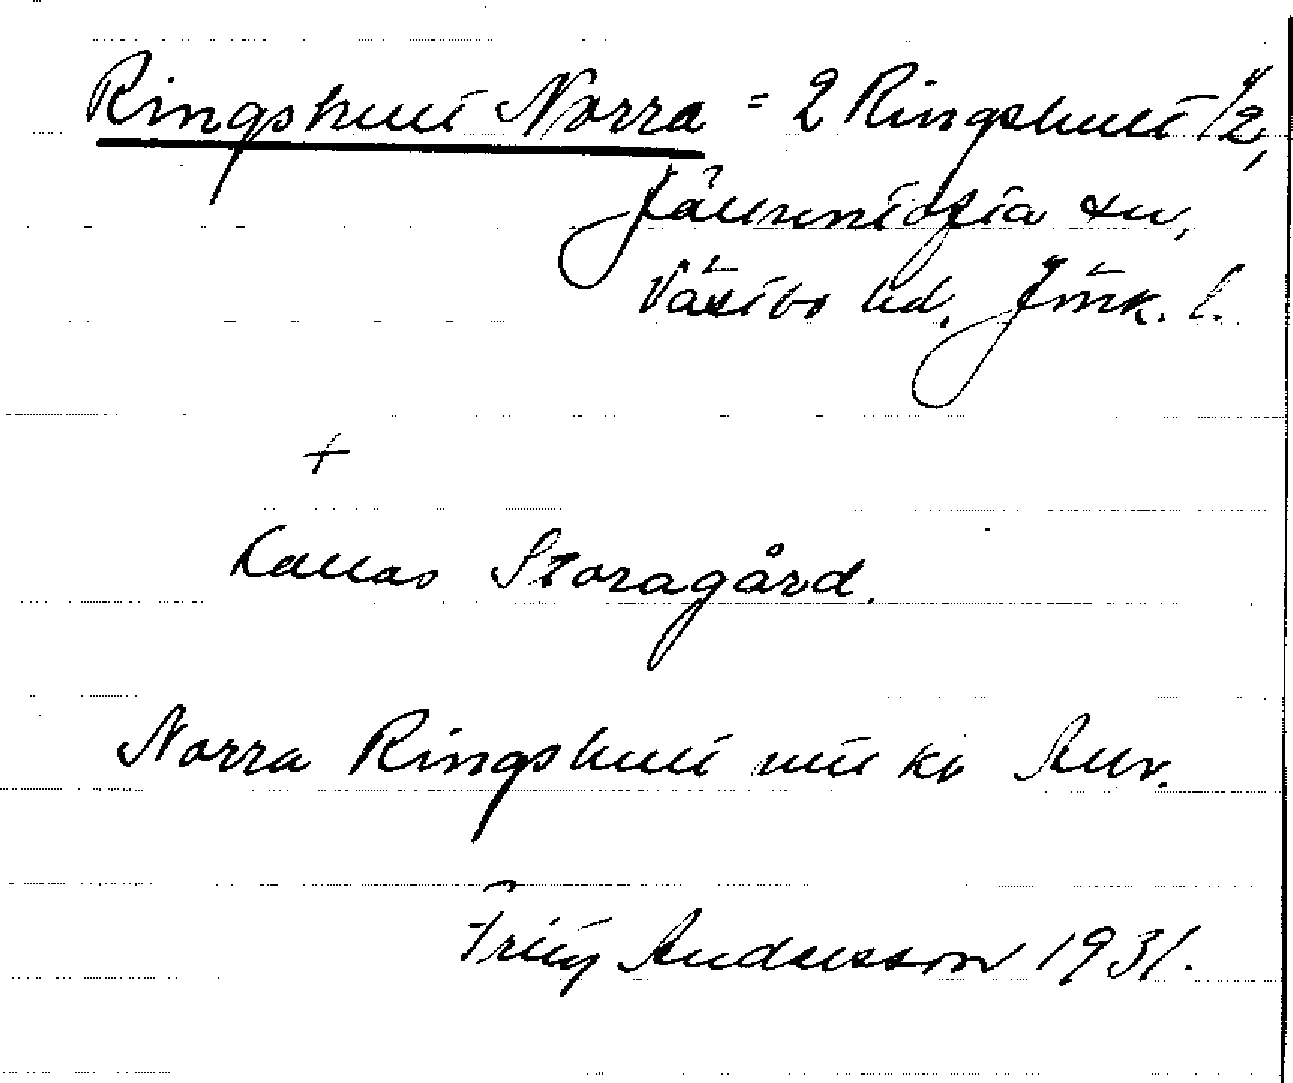 Ringshult Norra = 2 Ringshult 1/2,
Jälluntofta sn,
Västbo hd. Jönk. l.
+
Kallas Storagård.
Norra Ringshult
Fritz Andersson 1931.